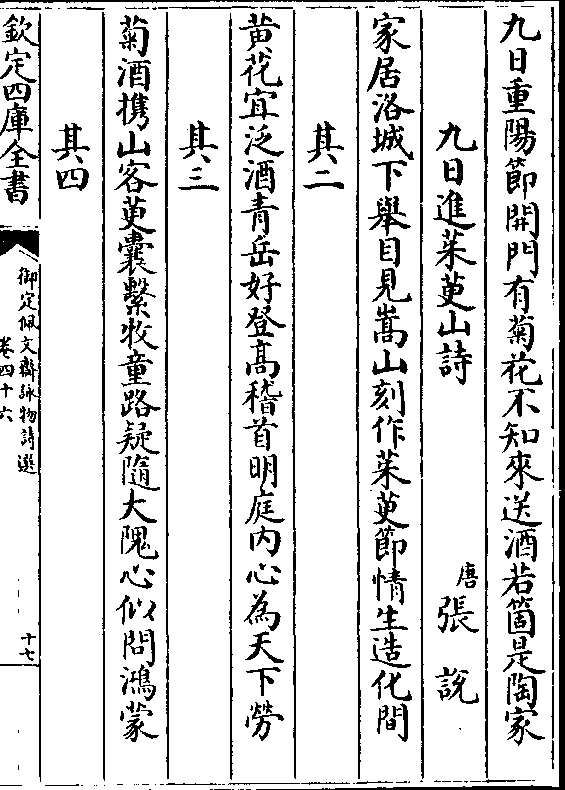 九日重陽節開門有菊花不知來送酒若箇是陶家
九日進茱萸山詩
唐張說
家居洛城下舉目見嵩山刻作茱萸節情生造化間
其二
黃花宜泛酒青岳好登髙稽首明庭内心為天下勞
其三
菊酒携山客萸囊繫牧童路疑隨大隗心似問鴻蒙
其四
欽定四庫全書
御定佩文齋詠物詩選
卷四十六
十七